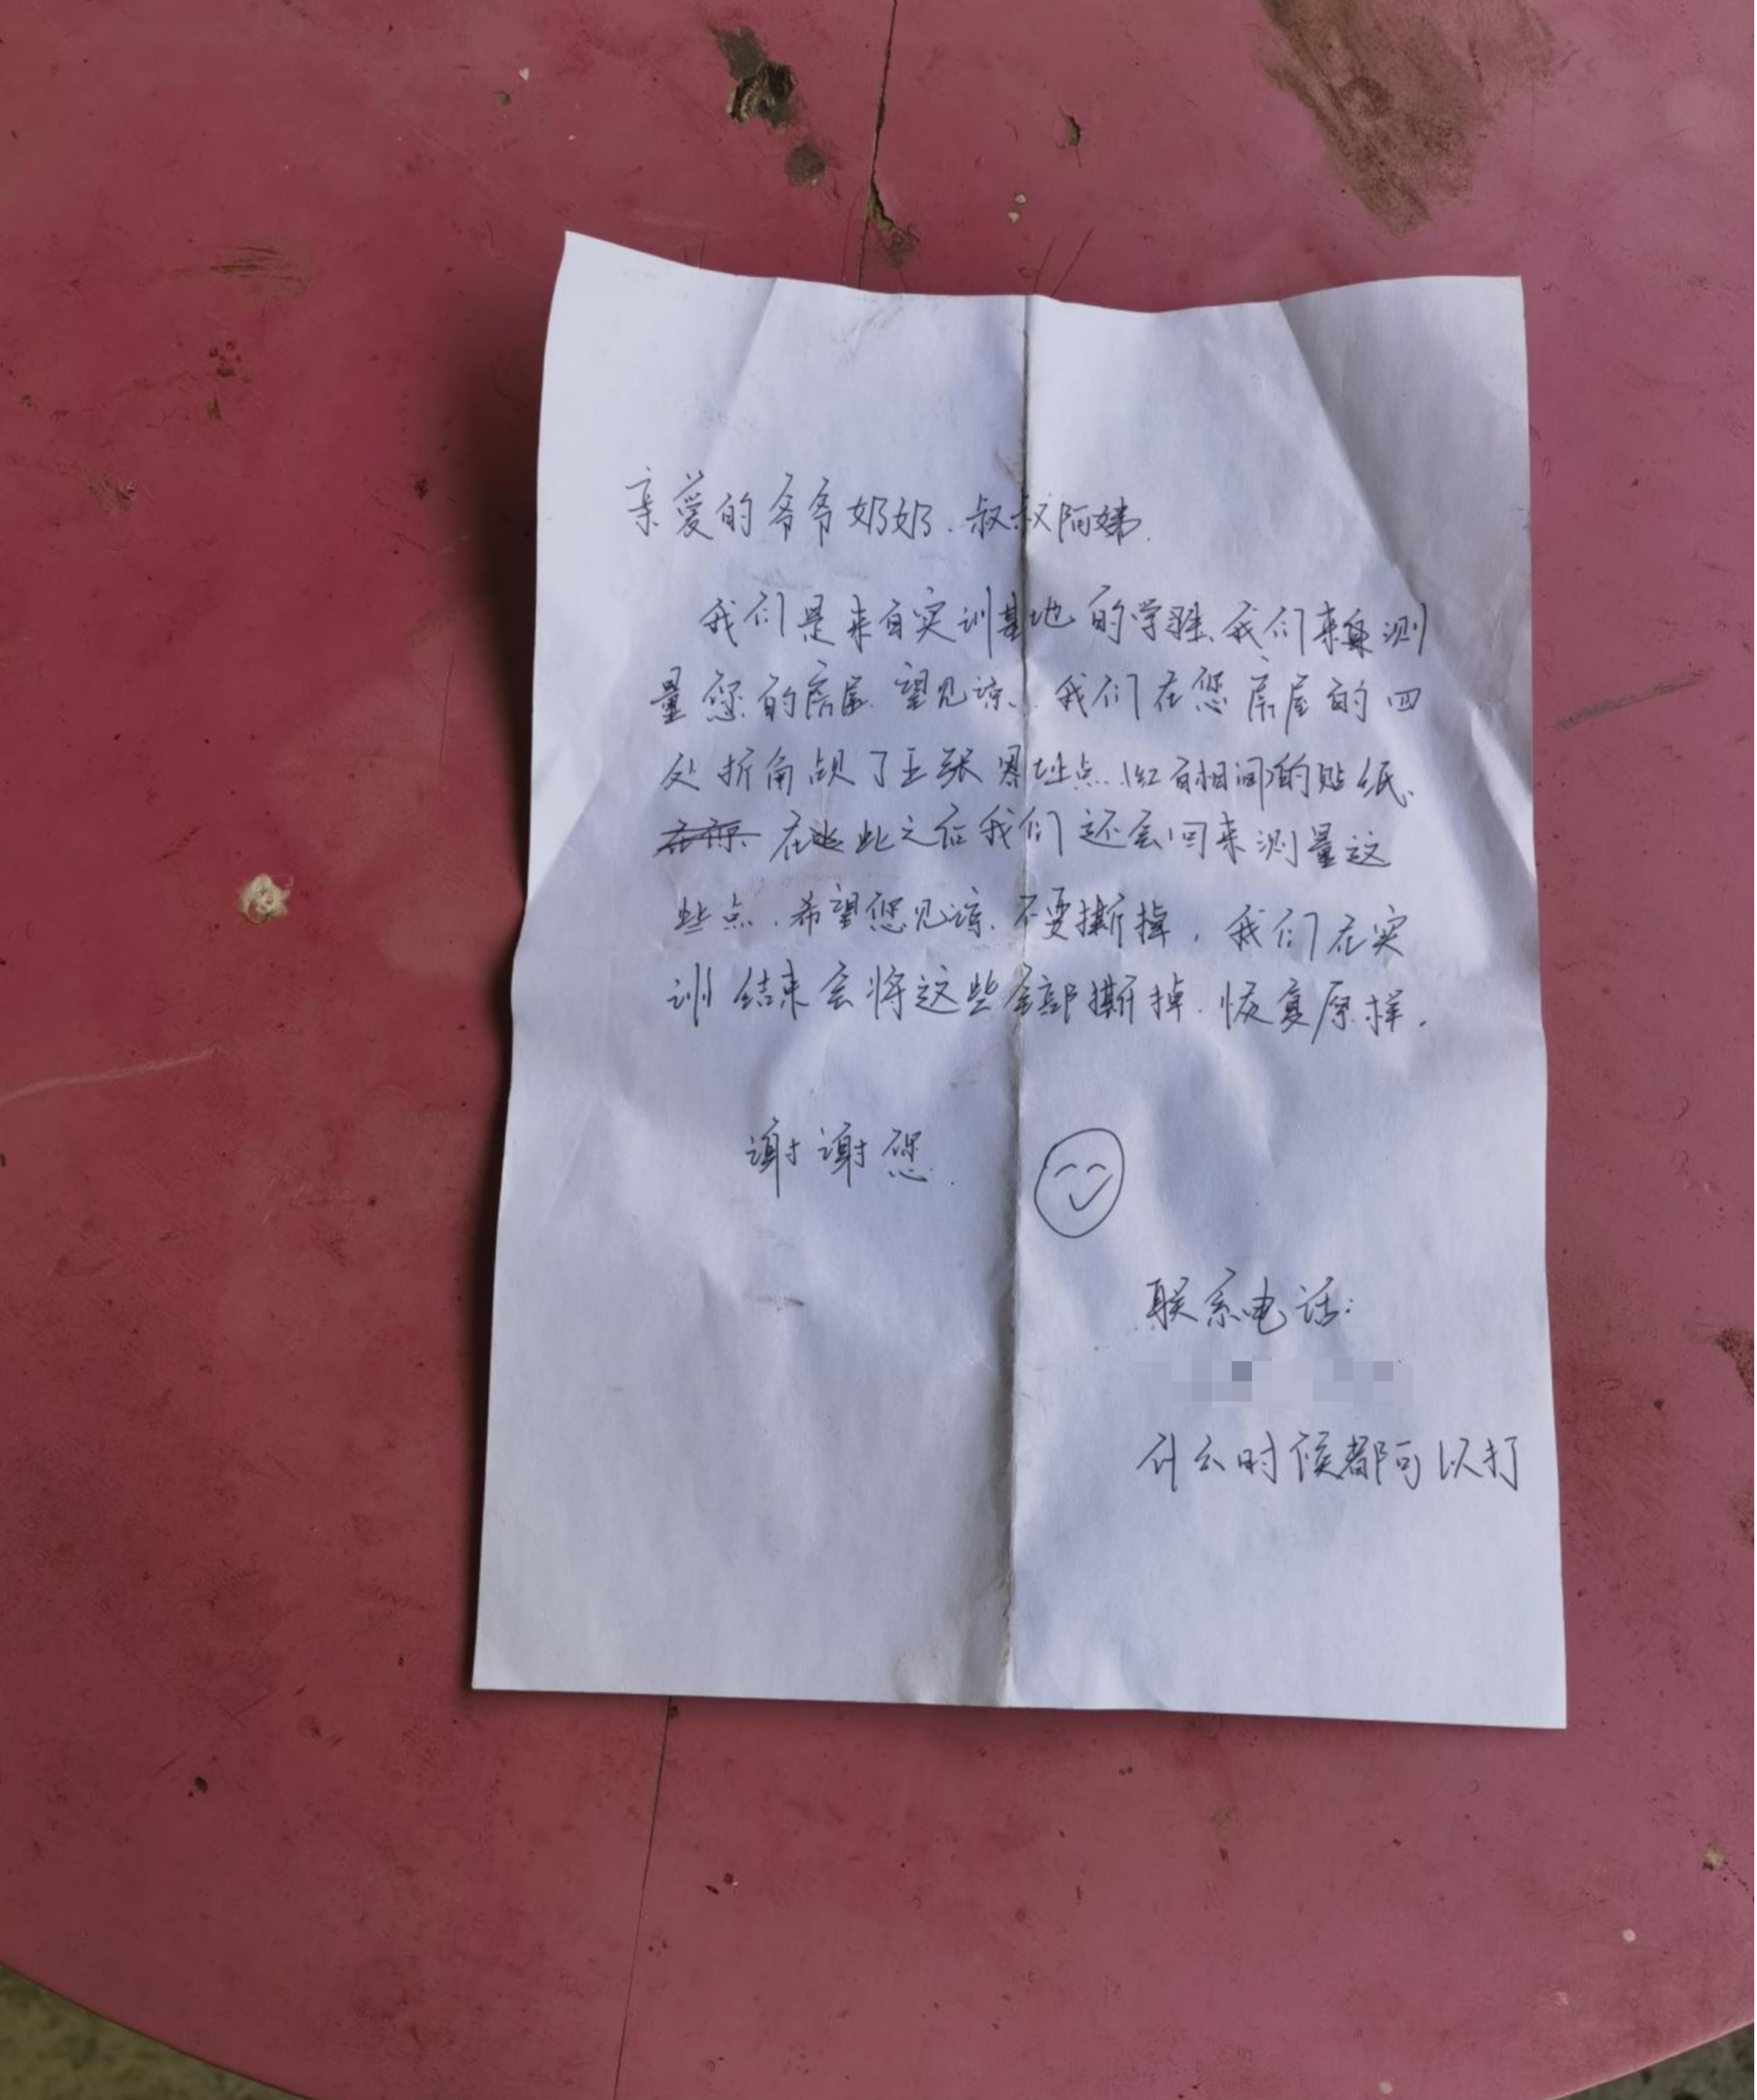 亲爱的爷爷奶奶、叔叔阿姨、
我们是来自实训基地的学生、我们来测
量您的房屋、望见谅、我们在您房屋的四
处折角贴了五张界址点、(红白相间)的贴纸、
在此之后我们还会回来测量这
些点、希望您见谅、不要撕掉，我们在实
训结束会将这些全部撕掉、恢复原样，
谢谢您.
联系电话：
什么时候都可以打